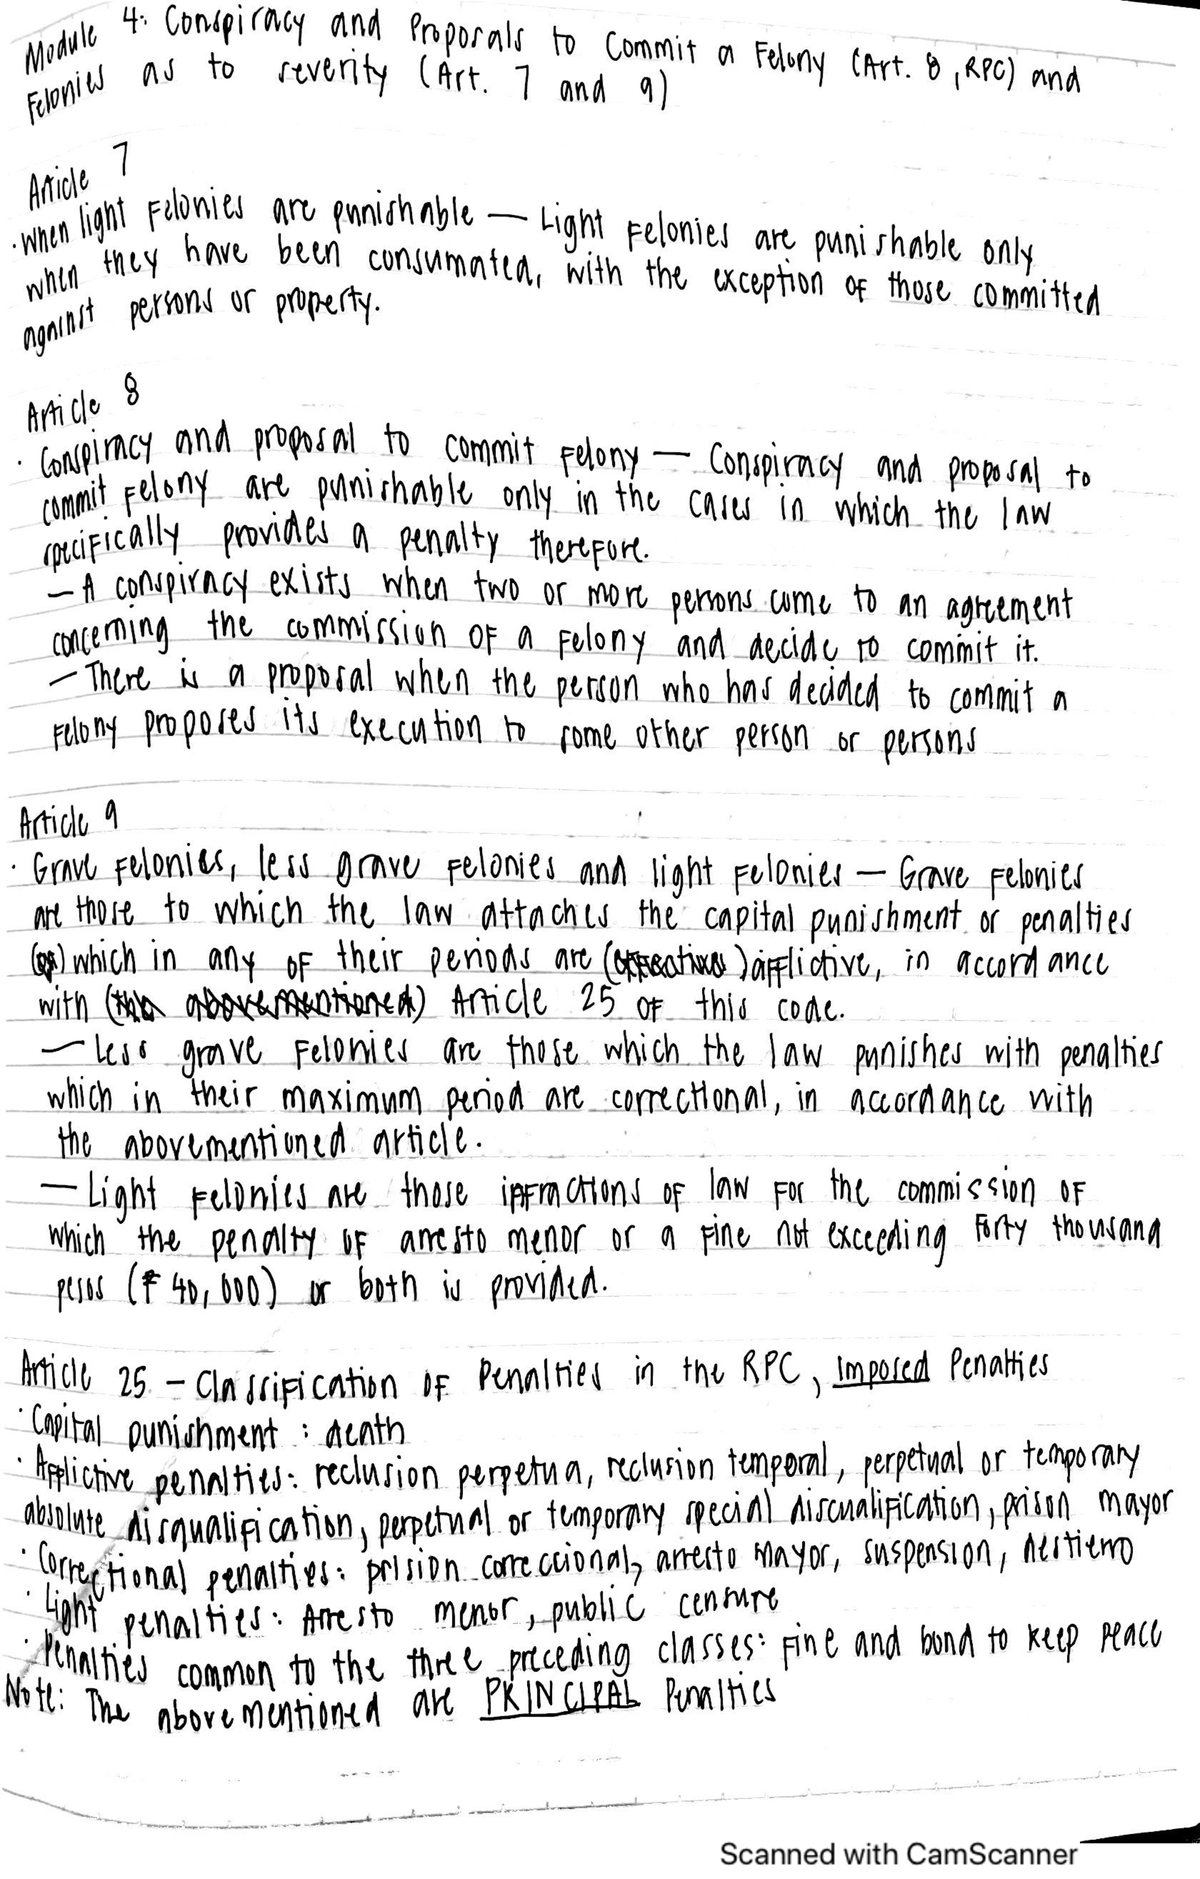 Module 4: Conspiracy and Proposals to Commit a Felony (Art. 8, RPC) and
Felonies as to severity (Art. 7 and 9)
Article 7
· When light Felonies are punishable — Light Felonies are punishable only
when they have been consumated, with the exception of those committed
against persons or property.
Article 8
· Conspiracy and proposal to commit Felony — Conspiracy and proposal to
commit Felony are punishable only in the cases in which the law
specifically provides a penalty therefore.
— A conspiracy exists when two or more persons come to an agreement
concerning the commission of a Felony and decide to commit it.
— There is a proposal when the person who has decided to commit a
Felony proposes its execution to some other person or persons
Article 9
· Grave Felonies, less grave Felonies and light Felonies — Grave Felonies
are those to which the law attaches the capital punishment or penalties
which in any of their periods are afflictive, in accordance
with (the abovementioned) Article 25 of this code.
— Less grave Felonies are those which the law punishes with penalties
which in their maximum period are correctional, in accordance with
the abovementioned article.
— Light Felonies are those infractions of law For the commission of
which the penalty of arresto menor or a Fine not exceeding Forty thousand
pesos (₱ 40,000) or both is provided.
Article 25 – Classification of Penalties in the RPC, Imposed Penalties
· Capital punishment : death
· Afflictive penalties: reclusion perpetua, reclusion temporal, perpetual or temporary
absolute disqualification, perpetual or temporary special discualification, prison mayor
· Correctional penalties: prision correccional, arresto mayor, suspension, destierro
· Light penalties: Arresto menor, public censure
· Penalties common to the three preceding classes: Fine and bond to keep peace
Note: The abovementioned are PRINCIPAL Penalties
Scanned with CamScanner